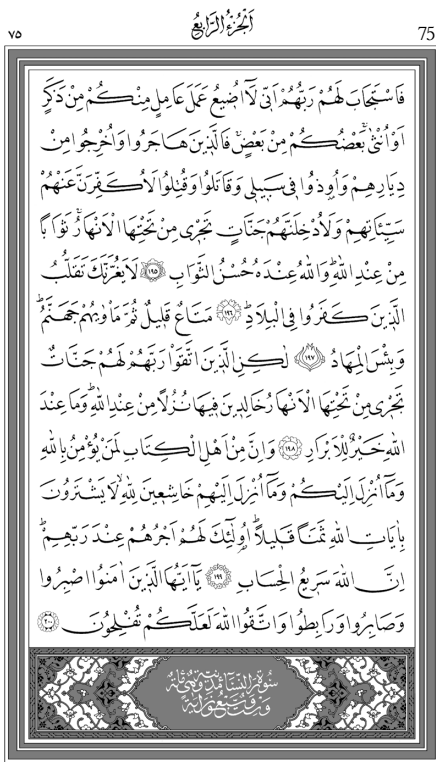 ٧٥ اَلْجُزْءُ الرَّابِعُ 75
فَاسْتَجَابَ لَهُمْ رَبُّهُمْ اَنّ۪ي لَٓا اُض۪يعُ عَمَلَ عَامِلٍ مِنْكُمْ مِنْ ذَكَرٍ
اَوْ اُنْثٰىۚ بَعْضُكُمْ مِنْ بَعْضٍۚ فَالَّذ۪ينَ هَاجَرُوا وَاُخْرِجُوا مِنْ
دِيَارِهِمْ وَاُو۫ذُوا ف۪ي سَب۪يل۪ي وَقَاتَلُوا وَقُتِلُوا لَاُكَفِّرَنَّ عَنْهُمْ
سَيِّـَٔاتِهِمْ وَلَاُدْخِلَنَّهُمْ جَنَّاتٍ تَجْر۪ي مِنْ تَحْتِهَا الْاَنْهَارُۚ ثَوَاباً
مِنْ عِنْدِ اللّٰهِۜ وَاللّٰهُ عِنْدَهُ حُسْنُ الثَّوَابِ ﴿١٩٥﴾ لَا يَغُرَّنَّكَ تَقَلُّبُ
الَّذ۪ينَ كَفَرُوا فِي الْبِلَادِۜ ﴿١٩٦﴾ مَتَاعٌ قَل۪يلٌ ثُمَّ مَأْوٰيهُمْ جَهَنَّمُۜ
وَبِئْسَ الْمِهَادُ ﴿١٩٧﴾ لٰكِنِ الَّذ۪ينَ اتَّقَوْا رَبَّهُمْ لَهُمْ جَنَّاتٌ
تَجْر۪ي مِنْ تَحْتِهَا الْاَنْهَارُ خَالِد۪ينَ ف۪يهَا نُزُلاً مِنْ عِنْدِ اللّٰهِۜ وَمَا عِنْدَ
اللّٰهِ خَيْرٌ لِلْاَبْرَارِ ﴿١٩٨﴾ وَاِنَّ مِنْ اَهْلِ الْكِتَابِ لَمَنْ يُؤْمِنُ بِاللّٰهِ
وَمَٓا اُنْزِلَ اِلَيْكُمْ وَمَٓا اُنْزِلَ اِلَيْهِمْ خَاشِع۪ينَ لِلّٰهِۙ لَا يَشْتَرُونَ
بِاٰيَاتِ اللّٰهِ ثَمَناً قَل۪يلاًۜ اُو۬لٰٓئِكَ لَهُمْ اَجْرُهُمْ عِنْدَ رَبِّهِمْۜ
اِنَّ اللّٰهَ سَر۪يعُ الْحِسَابِ ﴿١٩٩﴾ يَٓا اَيُّهَا الَّذ۪ينَ اٰمَنُوا اصْبِرُوا
وَصَابِرُوا وَرَابِطُوا وَاتَّقُوا اللّٰهَ لَعَلَّكُمْ تُفْلِحُونَ ﴿٢٠٠﴾
سُورَةُ النِّسَاءِ مَدَنِيَّةٌ وَهِيَ مِائَةٌ
وَسِتٌّ وَسَبْعُونَ اٰيَةً